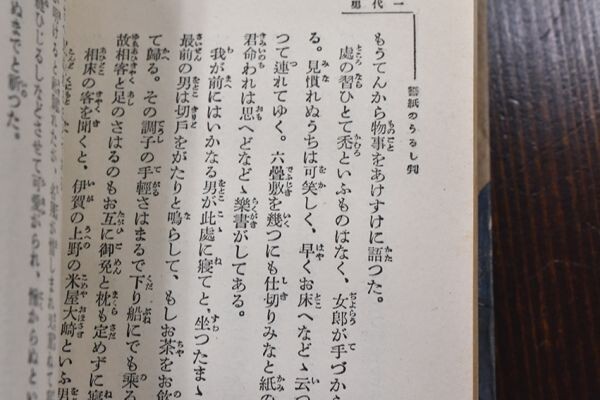 一代男
誓紙のうるし判
もうてんから物事をあけすけに語つた。
處の習ひとて禿といふものはなく、女郎が手づか
る。見慣れぬうちは可笑しく、早くお床へなどゝ云つ
つて連れてゆく。六疊敷を幾つにも仕切りみなと紙の
君命われは思へどなどゝ樂書がしてある。
我が前にはいかなる男が此處に寢てと、坐つたまゝ
最前の男は切戸をがたりと鳴らして、もしお茶をお飮
て歸る。その調子の手輕さはまるで下り船にでも乘る
故相客と足のさはるのもお互に御免と枕も定めずに寢
相床の客を聞くと、伊賀の上野の米屋大崎といふ男
ぬまでと祈つた。